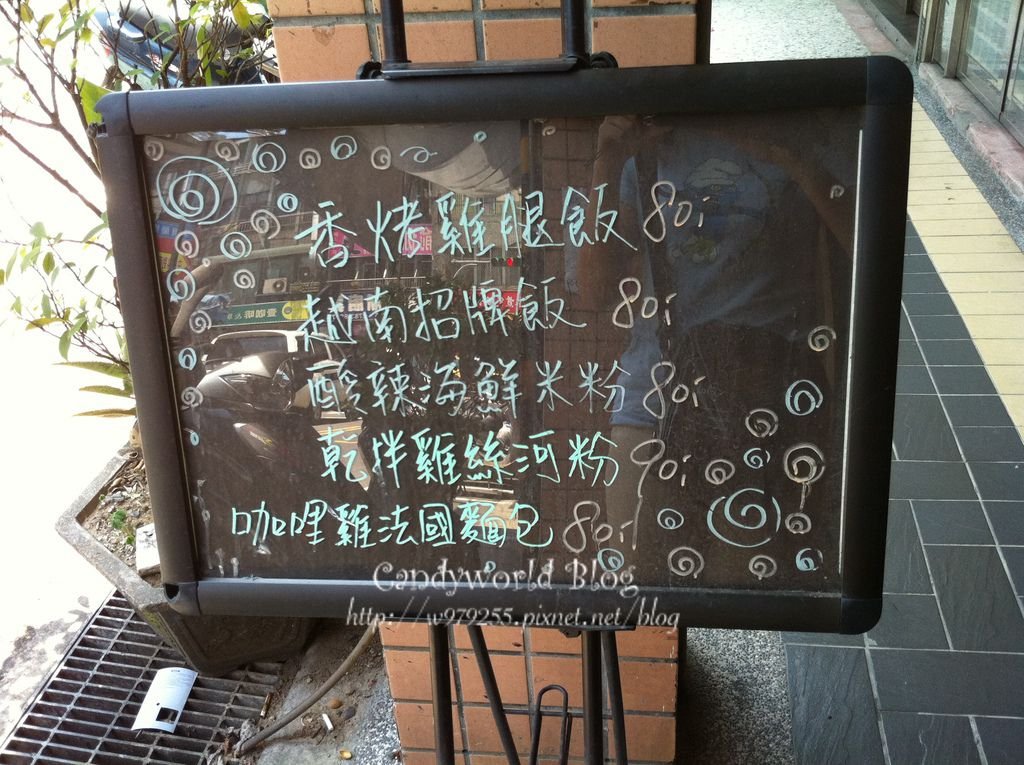 香烤雞腿飯 80
越南招牌飯 80
酸辣海鮮米粉 80
乾拌雞絲河粉 90
咖哩雞法國麵包 80
Candyworld Blog
http://w979255.pixnet.net/blog